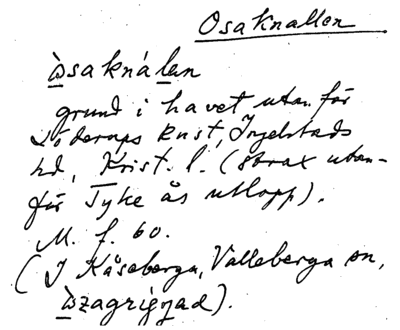 Osaknallen
ò̱saknálan
grund i havet utan för
Löderups kust, Ingelstads
hd, Krist. l. (strax utan-
för Tyke ås utlopp).
M. f. 60.
(I Kåseberga, Valleberga sn,